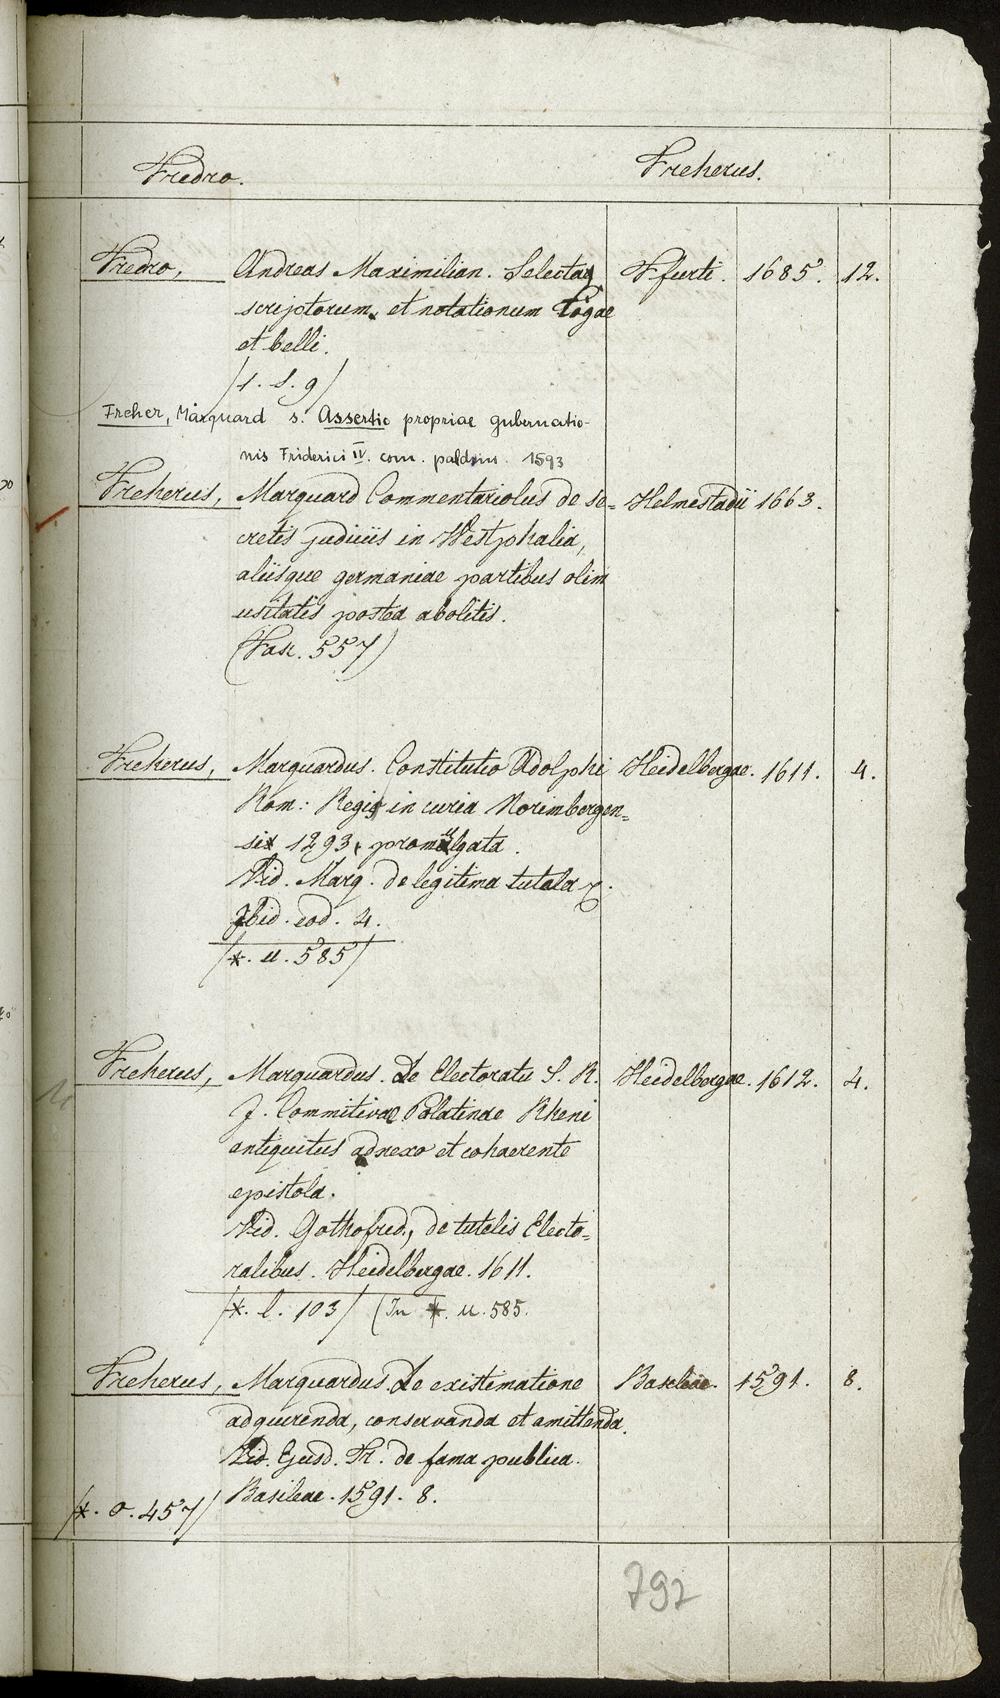 Fredro.
Freherus.
Fredro, Andreas Maximilian. Selecta Ffurti. 1685. 12.
scriptorum, et notationum togae
et belli.
/1. S. 9/
Freher, Marquard s. Assertio propriae gubernatio-
nis Friderici IV. com. palatini. 1593
Freherus, Marquard Commentariolus de se= Helmestadii 1663.
cretis judiciis in Westphalia,
aliisque germaniae partibus olim
usitatis postea abolitis.
(Fasc. 557)
Freherus, Marquardus. Constitutio Adolphi Heidelbergae. 1611. 4.
Rom: Regis in curia Norimbergen=
si 1293, promulgata.
Vid. Marq. de legitima tutela
Ibid. eod. 4.
/*. u. 585/
Freherus, Marquardus. De Electoratu S. R. Heidelbergae. 1612. 4.
J. Commitivae Palatinae Rheni
antiquitus adnexo et cohaerente
epistola.
Vid. Gothofred., de tutelis Electo=
ralibus. Heidelbergae. 1611.
/*. l. 103/ (In *. u. 585.
Freherus, Marquardus. De existimatione Basileae. 1591. 8.
adquirenda, conservanda et amittenda.
Vid. Ejusd. Tr. de fama publica.
Basileae. 1591. 8.
/*. o. 457/
792